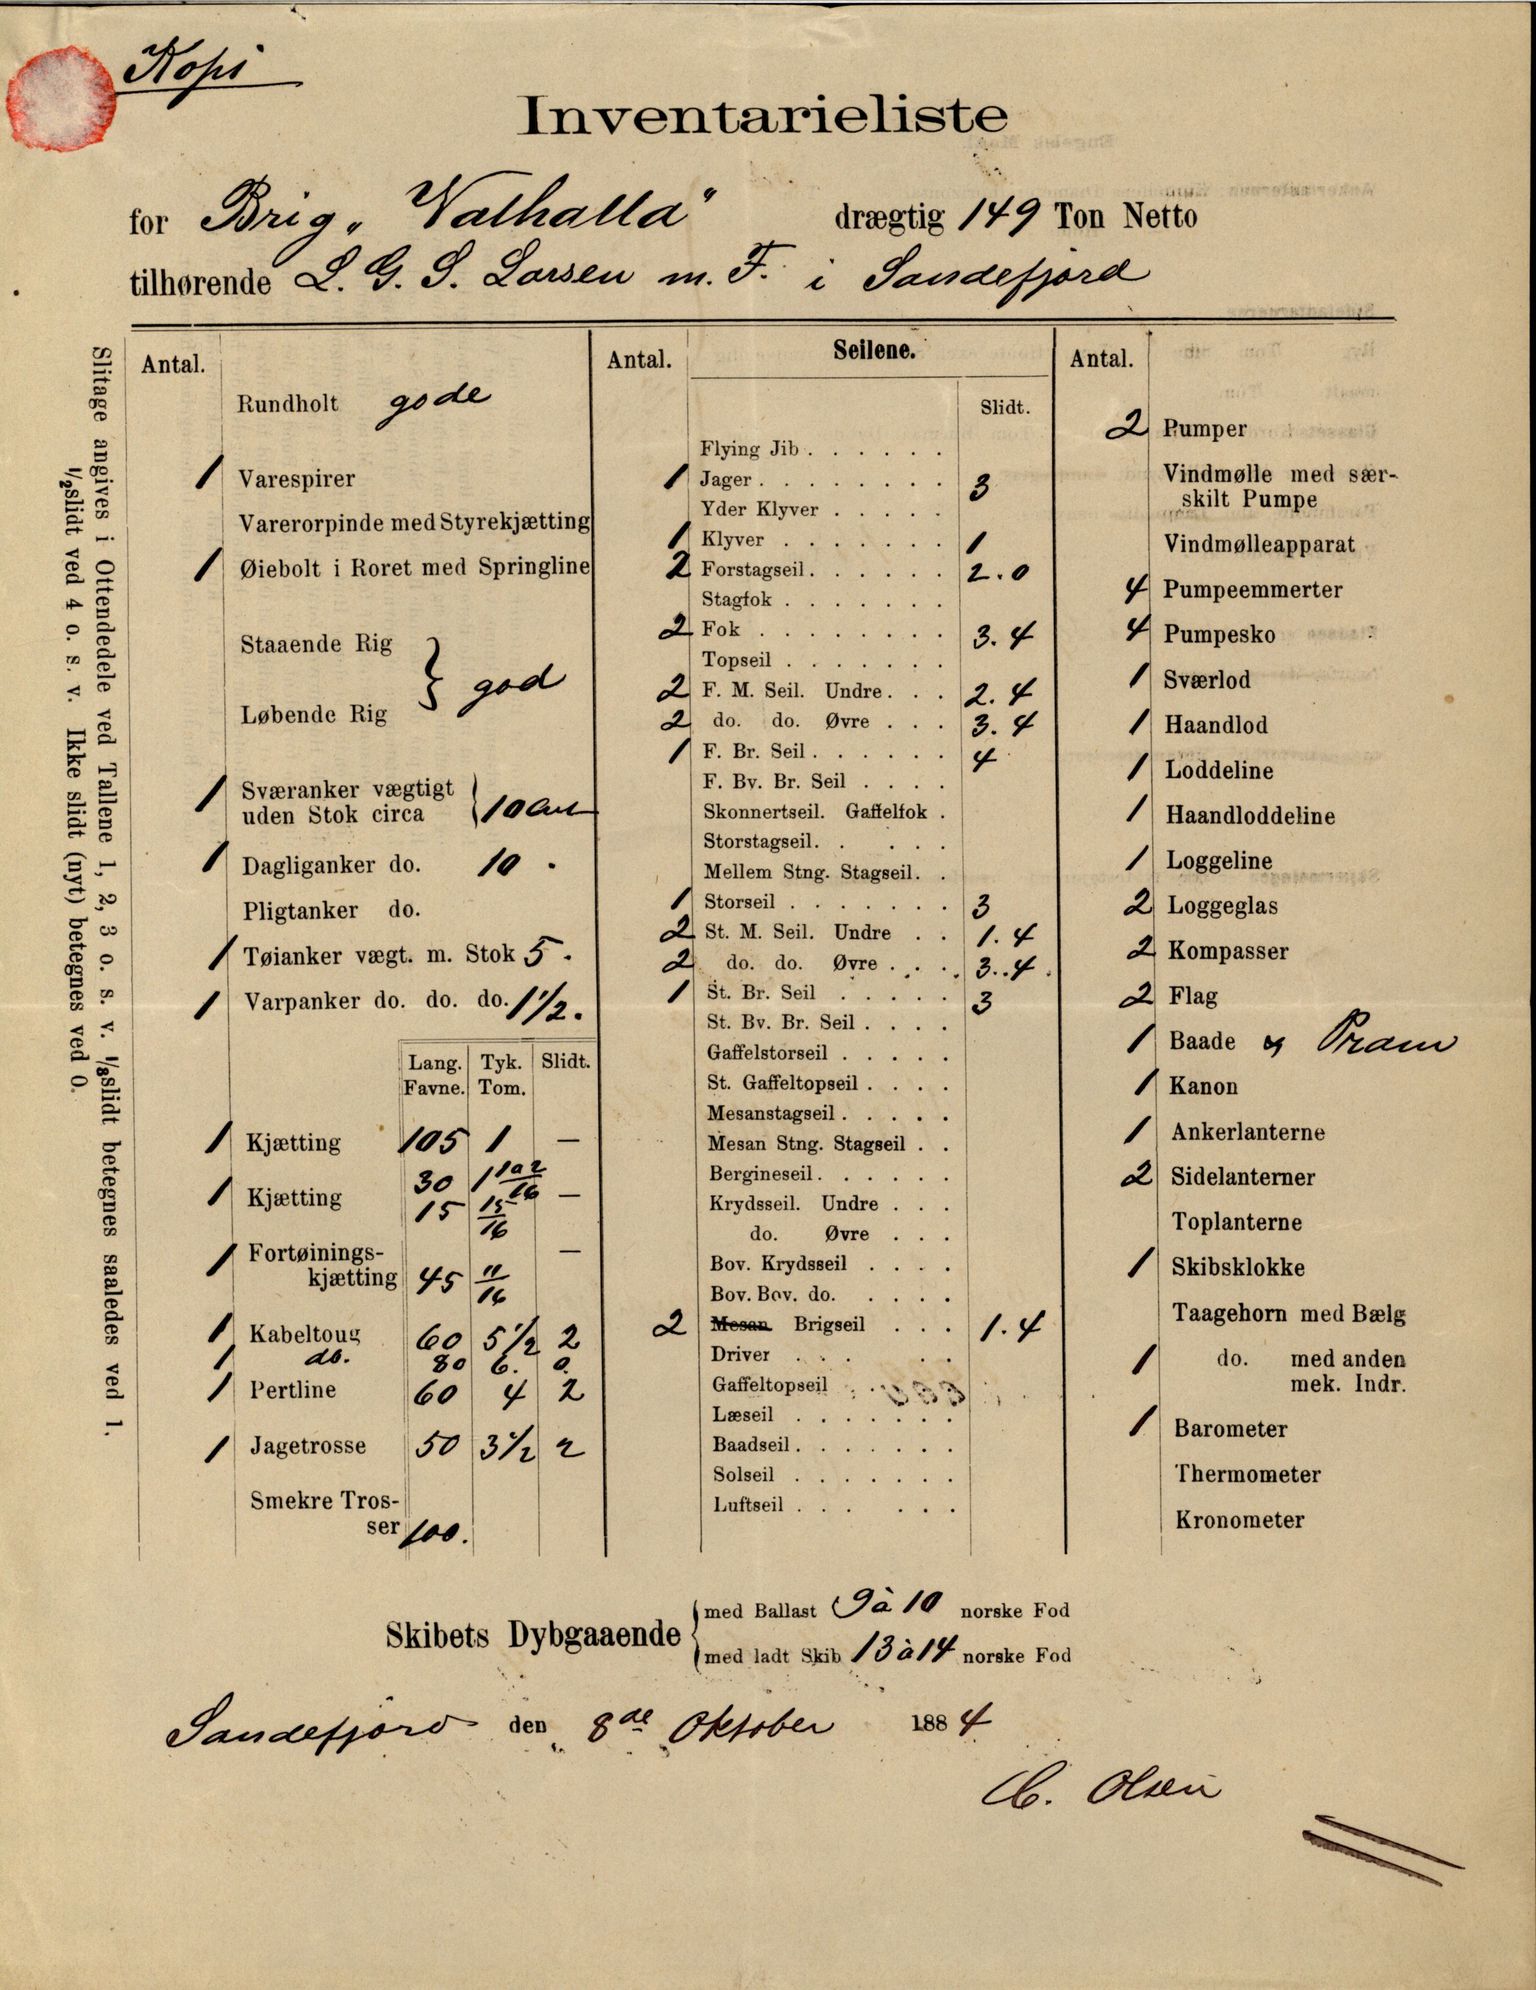 Kopi
Inventarieliste
for Brig „Valhalla" drægtig 149 Ton Netto
tilhørende L. G. S. Larsen m. F. i Sandefjord
Slitage angives i Ottendedele ved Tallene 1, 2, 3 o. s. v. 1/8 slidt betegnes saaledes ved 1.
1/2 slidt ved 4 o. s. v. Ikke slidt (nyt) betegnes ved 0.
Antal.
Rundholt gode
1 Varespirer
Varerorpinde med Styrekjætting
1 Øiebolt i Roret med Springline
Staaende Rig
} god
Løbende Rig
1 Sværanker vægtigt
uden Stok circa } 10 Cwt
1 Dagliganker do. 10 .
Pligtanker do.
1 Tøianker vægt. m. Stok 5 .
1 Varpanker do. do. do. 1 1/2 .
Lang. Tyk. Slidt.
Favne. Tom.
1 Kjætting 105 1 —
1 Kjætting 30 1 1 a 2/16 —
15 15/16
1 Fortøinings- —
kjætting 45 11/16
1 Kabeltoug 60 5 1/2 2
1 do. 80 6. 0.
1 Pertline 60 4 2
1 Jagetrosse 50 3 1/2 2
Smekre Tros-
ser 100.
Antal. Seilene.
Slidt.
Flying Jib . . . . . .
1 Jager . . . . . . . . 3
Yder Klyver . . . . .
1 Klyver . . . . . . . 1
2 Forstagseil . . . . . . 2.0
Stagfok . . . . . . .
2 Fok . . . . . . . . 3.4
Topseil . . . . . . .
2 F. M. Seil. Undre . . . 2.4
2 do. do. Øvre . . . 3.4
1 F. Br. Seil . . . . . . 4
F. Bv. Br. Seil . . . .
Skonnertseil. Gaffelfok .
Storstagseil. . . . .
Mellem Stng. Stagseil. .
1 Storseil . . . . . . . 3
2 St. M. Seil. Undre . . 1.4
2 do. do. Øvre . . . . 3.4.
1 St. Br. Seil . . . . . 3
St. Bv. Br. Seil . . . .
Gaffelstorseil . . . . .
St. Gaffeltopseil . . . .
Mesanstagseil . . . . .
Mesan Stng. Stagseil . .
Bergineseil. . . . . .
Krydsseil. Undre . . .
do. Øvre . . .
Bov. Krydsseil . . . .
Bov. Bov. do. . . . .
2 Mesan Brigseil . . . 1.4
Driver . . . . .
Gaffeltopseil
Læseil . . . . . . .
Baadseil . . . . . . .
Solseil . . . . . . .
Luftseil . . . . . .
Antal.
2 Pumper
Vindmølle med sær-
skilt Pumpe
Vindmølleapparat
4 Pumpeemmerter
4 Pumpesko
1 Sværlod
1 Haandlod
1 Loddeline
1 Haandloddeline
1 Loggeline
2 Loggeglas
2 Kompasser
2 Flag
1 Baade og Pram
1 Kanon
1 Ankerlanterne
2 Sidelanterner
Toplanterne
1 Skibsklokke
Taagehorn med Bælg
1 do. med anden
mek. Indr.
1 Barometer
Thermometer
Kronometer
Skibets Dybgaaende { med Ballast 9 à 10 norske Fod
med ladt Skib 13 à 14 norske Fod
Sandefjord den 8de Oktober 1884
C. Olsen